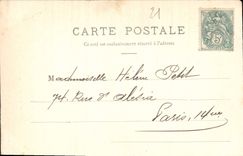 21
CARTE POSTALE
Ce côté est exclusivement réservé à l'adresse.
Mademoiselle Helene Petit
74, Rue d'Alésia
Paris, 14me
5